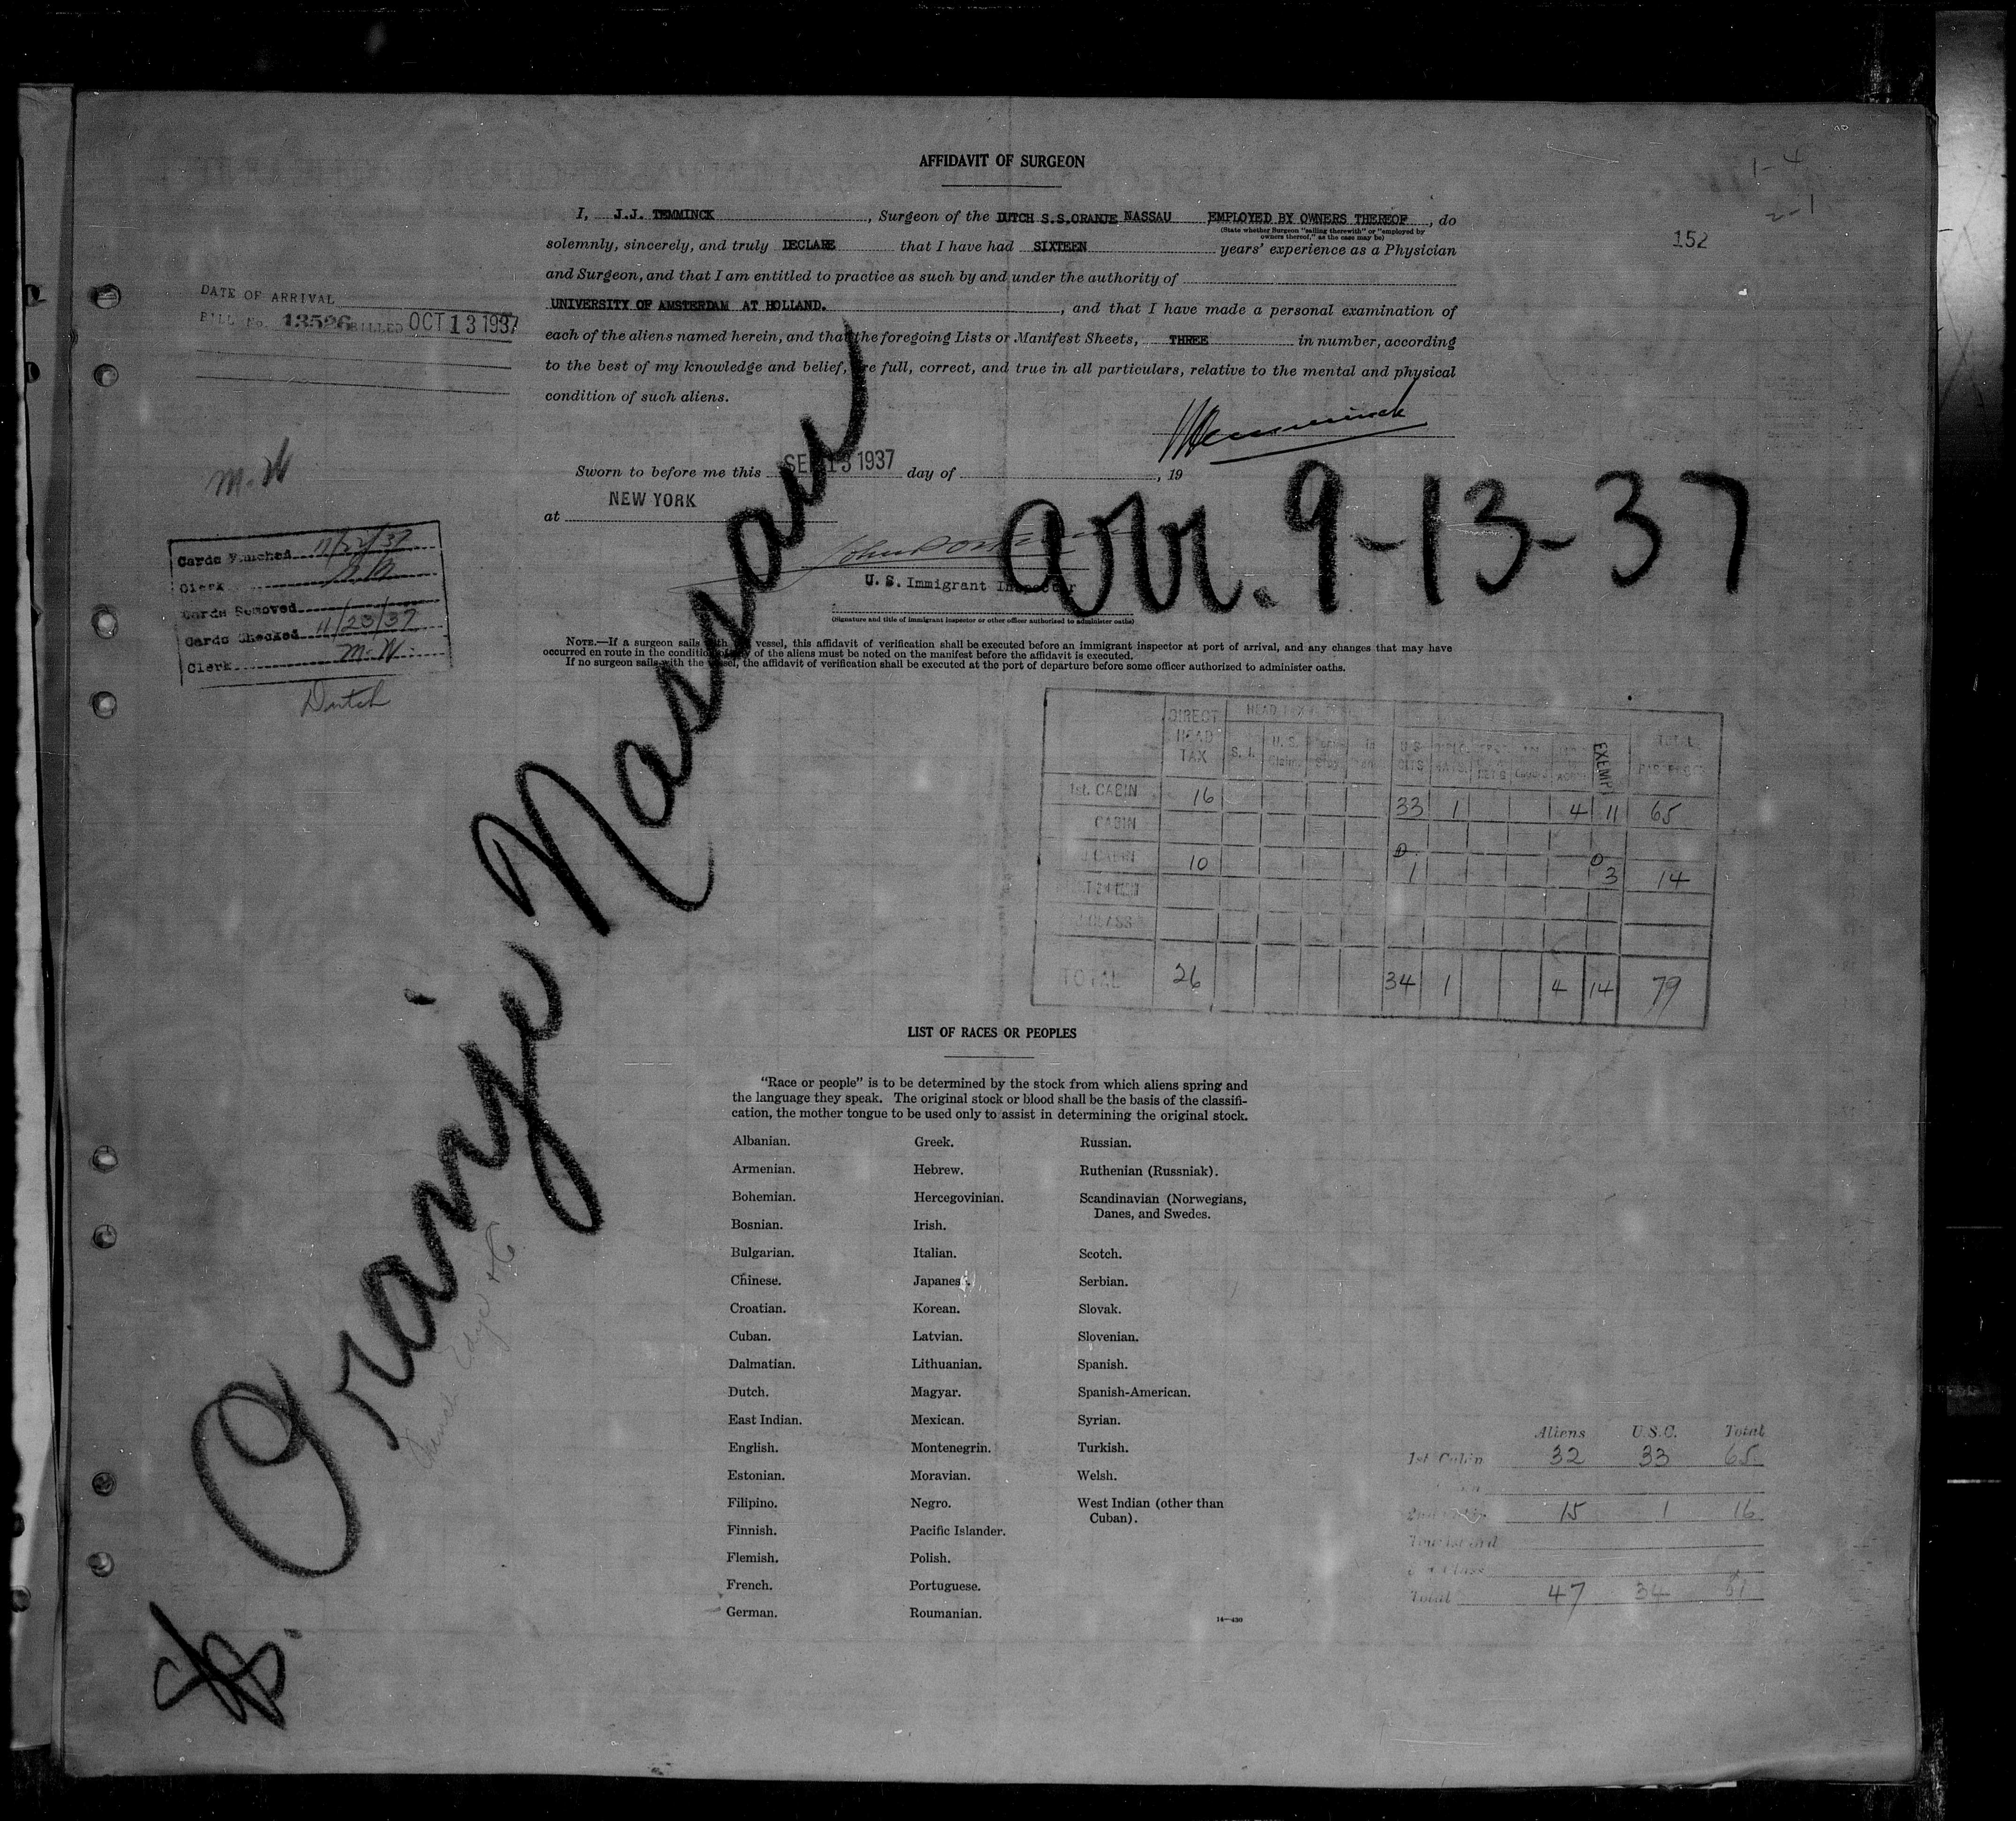 AFFIDAVIT OF SURGEON
1-4
2-1
152
I, J.J. TEMMINCK, Surgeon of the DUTCH S.S.ORANJE NASSAU EMPLOYED BY OWNERS THEREOF, do
(State whether Surgeon "sailing therewith" or "employed by
owners thereof," as the case may be)
solemnly, sincerely, and truly DECLARE that I have had SIXTEEN years' experience as a Physician
and Surgeon, and that I am entitled to practice as such by and under the authority of
UNIVERSITY OF AMSTERDAM AT HOLLAND., and that I have made a personal examination of
each of the aliens named herein, and that the foregoing Lists or Manifest Sheets, THREE in number, according
to the best of my knowledge and belief, are full, correct, and true in all particulars, relative to the mental and physical
condition of such aliens.
DATE OF ARRIVAL
BILL No. 13526 BILLED OCT 13 1937
Temminck
Sworn to before me this SEP 13 1937 day of , 19
at NEW YORK
U. S. Immigrant Inspector
(Signature and title of immigrant inspector or other officer authorized to administer oaths)
Arr. 9-13-37
M.W
Cards Punched 11/22/37
Clerk
Cards Removed
Cards Checked 11/23/37
Clerk M.W.
Dutch
NOTE.—If a surgeon sails with the vessel, this affidavit of verification shall be executed before an immigrant inspector at port of arrival, and any changes that may have
occurred en route in the condition of any of the aliens must be noted on the manifest before the affidavit is executed.
If no surgeon sails with the vessel, the affidavit of verification shall be executed at the port of departure before some officer authorized to administer oaths.
SS. Oranje Nassau
DIRECT HEAD TAX
HEAD TAX
S. I.
U. S.
U S CITS
EXEMPT
TOTAL
1st. CABIN 16 33 1 4 11 65
CABIN
CABIN 10 0 1 0 3 14
CLASS
TOTAL 26 34 1 4 14 79
LIST OF RACES OR PEOPLES
"Race or people" is to be determined by the stock from which aliens spring and
the language they speak. The original stock or blood shall be the basis of the classifi-
cation, the mother tongue to be used only to assist in determining the original stock.
Albanian.
Armenian.
Bohemian.
Bosnian.
Bulgarian.
Chinese.
Croatian.
Cuban.
Dalmatian.
Dutch.
East Indian.
English.
Estonian.
Filipino.
Finnish.
Flemish.
French.
German.
Greek.
Hebrew.
Hercegovinian.
Irish.
Italian.
Japanese.
Korean.
Latvian.
Lithuanian.
Magyar.
Mexican.
Montenegrin.
Moravian.
Negro.
Pacific Islander.
Polish.
Portuguese.
Roumanian.
Russian.
Ruthenian (Russniak).
Scandinavian (Norwegians,
Danes, and Swedes.
Scotch.
Serbian.
Slovak.
Slovenian.
Spanish.
Spanish-American.
Syrian.
Turkish.
Welsh.
West Indian (other than
Cuban).
14—430
Aliens U.S.C. Total
1st Cabin 32 33 65
15 1 16
Total 47 34 81